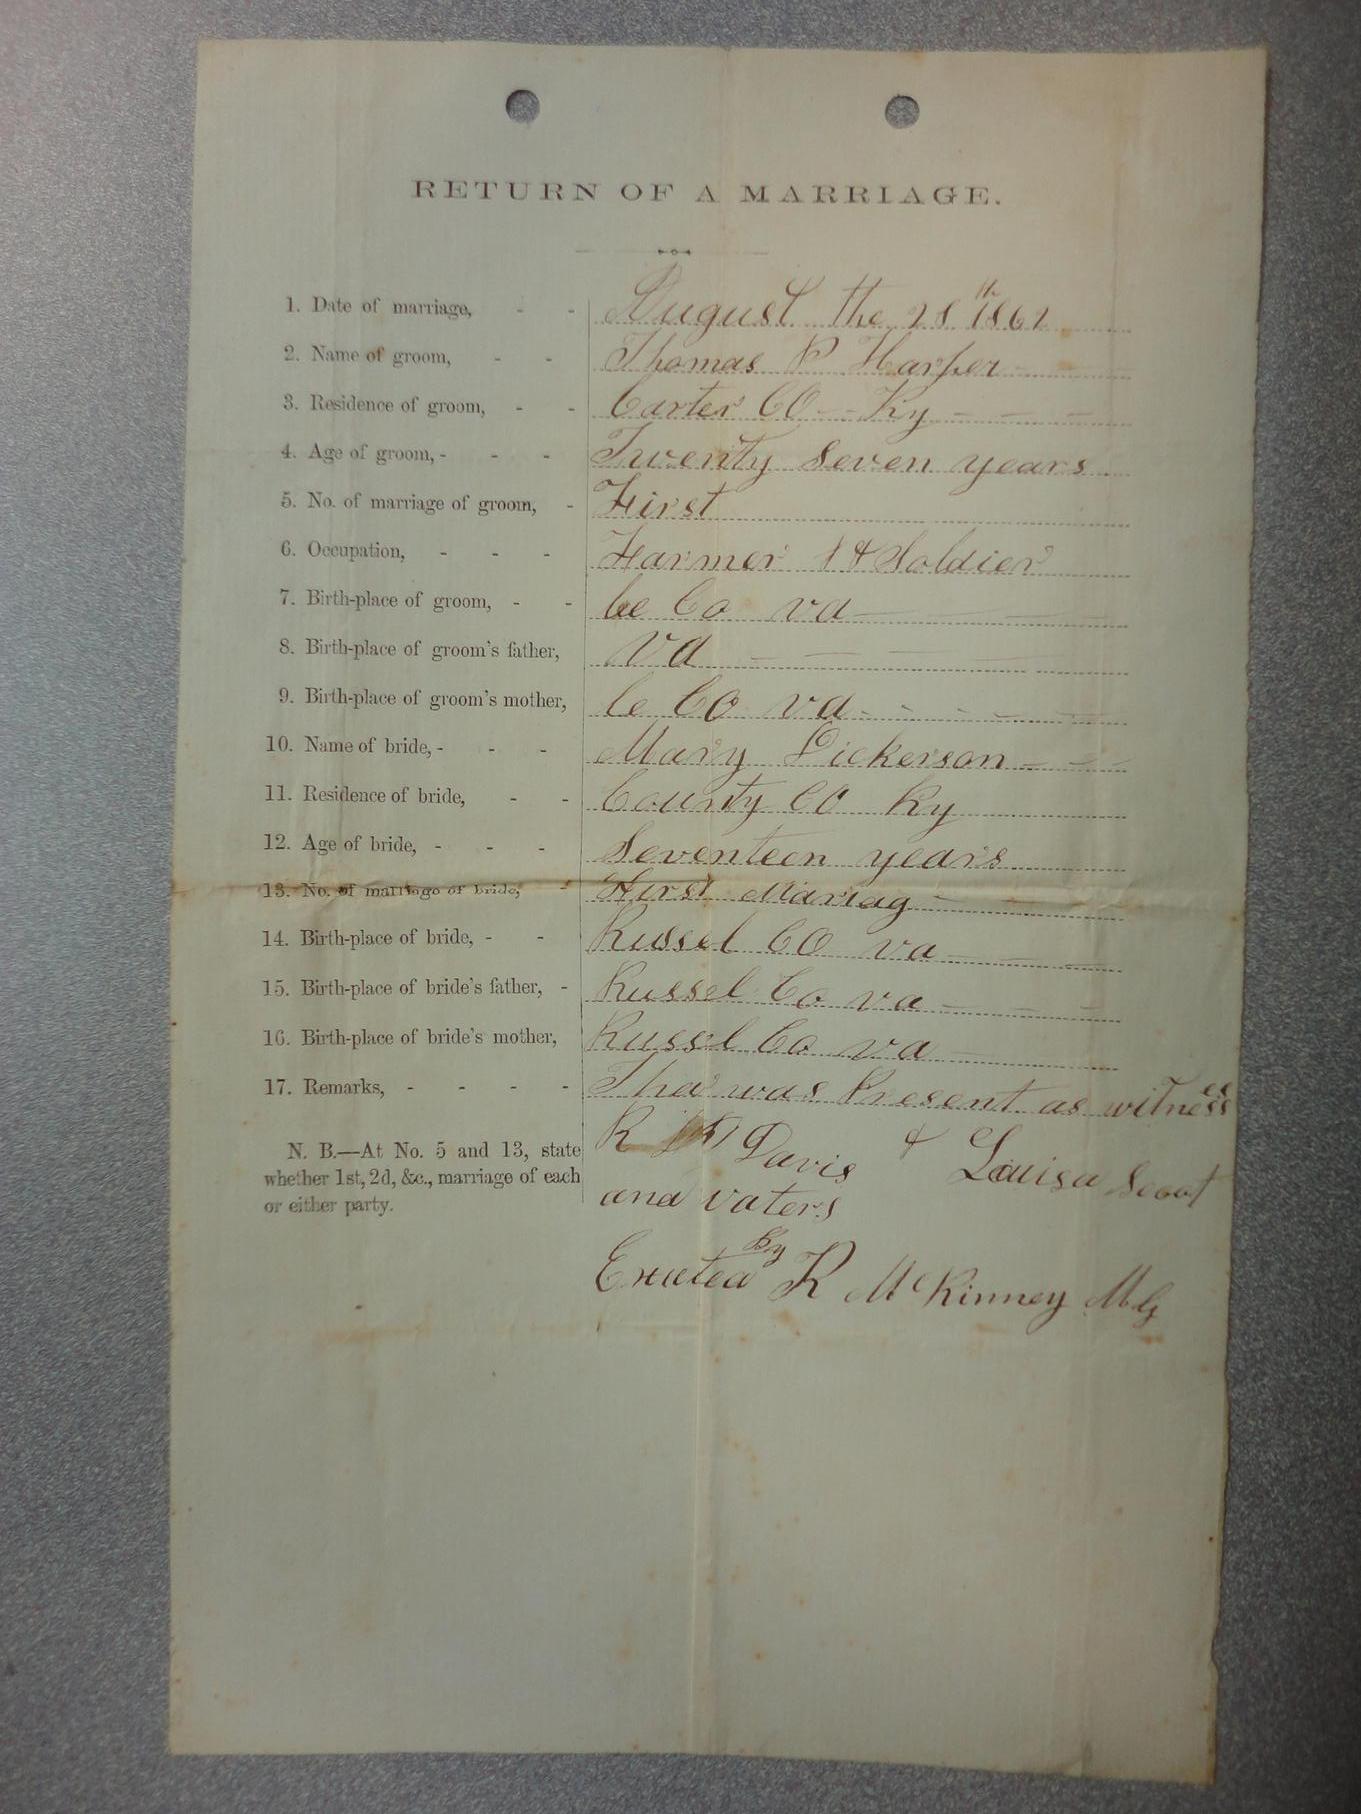 RETURN OF A MARRIAGE.
1. Date of marriage, - - August the 28th 1862
2. Name of groom, - - Thomas P Harper
3. Residence of groom, - - Carter CO - - Ky - - -
4. Age of groom, - - - Twenty Seven years
5. No. of marriage of groom, - First
6. Occupation, - - - Farmer & Soldier
7. Birth-place of groom, - - Co va
8. Birth-place of groom's father, va - - -
9. Birth-place of groom's mother, le CO va - - - - -
10. Name of bride, - - - Mary Dickerson - - -
11. Residence of bride, - - County CO Ky
12. Age of bride, - - - Seventeen years
13. No. of marriage of bride, - First Mariag - -
14. Birth-place of bride, - - Russel CO va - - -
15. Birth-place of bride's father, - Russel Co va - - -
16. Birth-place of bride's mother, Russel Co va
17. Remarks, - - - - was Present as witnesses
R Davis & Louisa Scoot
N. B.—At No. 5 and 13, state
whether 1st, 2d, &c., marriage of each
or either party.
and vaters
By
R McKinney